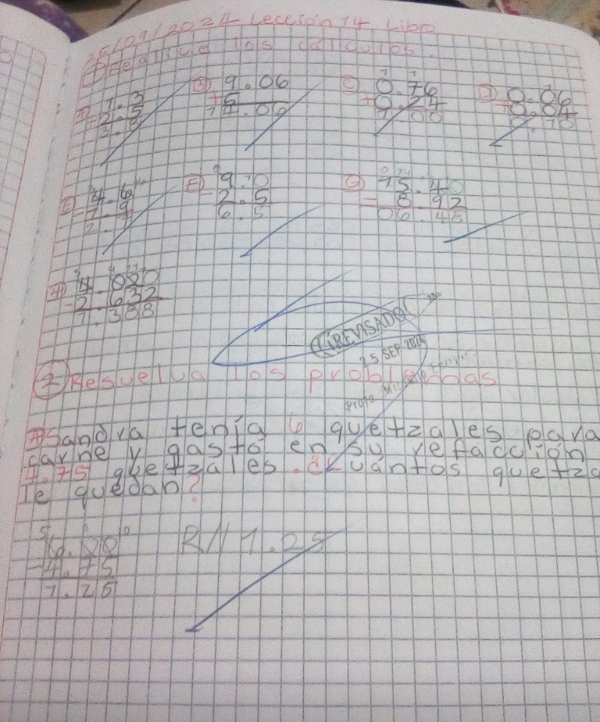 25/09/2024 Lección 14 Libro
1 Realice los cálculos.
A 1.3
+ 2.5
3.8
B 9.06
+ 5
14.06
C 0.76
+ 0.24
1.00
D 0.06
+ 0.04
0.10
E 4.6
- 1.9
2.7
F 9.0
- 2.5
6.5
G 15.40
- 8.92
06.48
H 4.000
- 2.632
1.368
¡REVISADO!
25 SEP 2024
2 Resuelva los problemas
A Sandra tenía 6 quetzales para
carne y gastó en su refacción
4.75 quetzales. ¿Cuántos quetza
le quedan?
6.00
- 4.75
1.25
R// 1.25